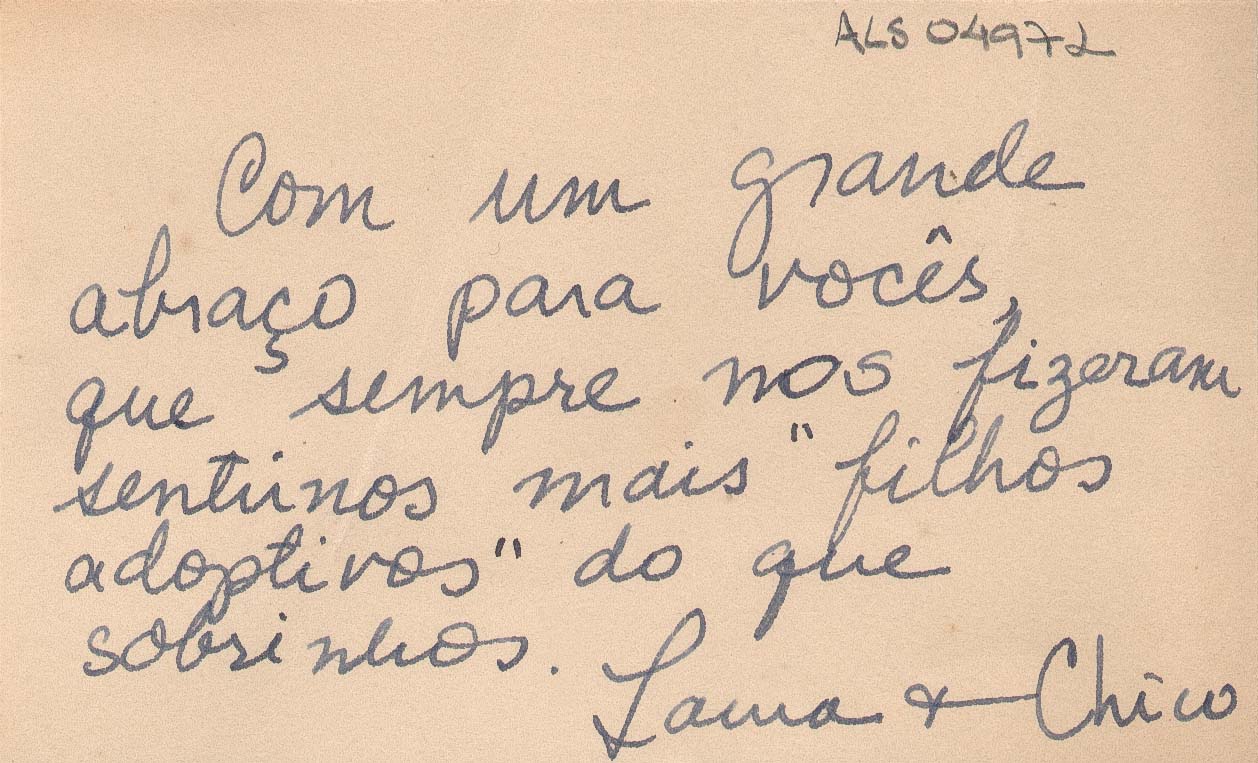 ALS 04972
Com um grande
abraço para vocês,
que sempre nos fizeram
sentirnos mais "filhos
adoptivos" do que
sobrinhos.
Laura & Chico